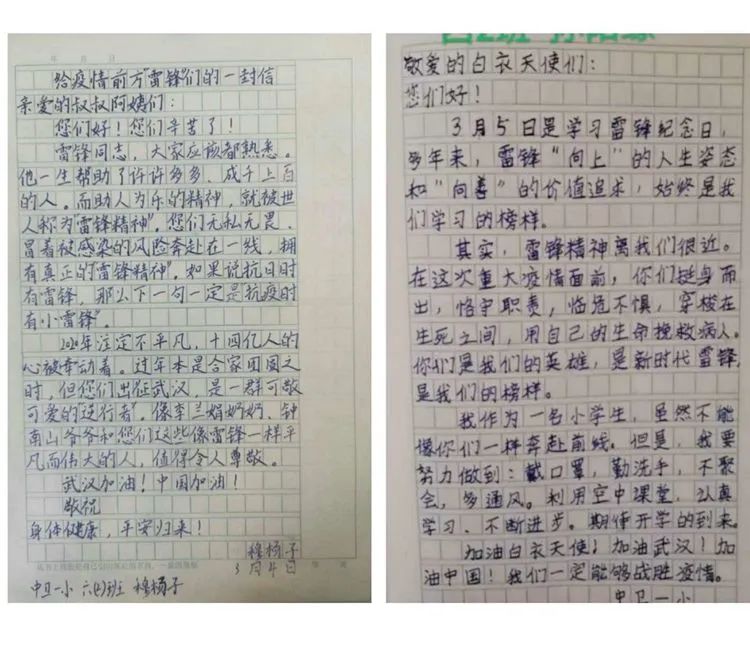 年 月 日
给疫情前方“雷锋”们的一封信
亲爱的叔叔阿姨们：
您们好！您们辛苦了！
雷锋同志，大家应该都熟悉。
他一生帮助了许许多多、成千上百
的人。而助人为乐的精神，就被世
人称为“雷锋精神”。您们无私无畏、
冒着被感染的风险奔赴在一线，拥
有真正的“雷锋精神”。如果说抗日时
有雷锋，那么下一句一定是抗疫时
有小雷锋”。
2020年注定不平凡，十四亿人的
心被牵动着。过年本是合家团圆之
时，但您们出征武汉，是一群可敬
可爱的“逆行者”。像李兰娟奶奶、钟
南山爷爷和您们这些像雷锋一样平
凡而伟大的人，值得令人尊敬。
武汉加油！中国加油！
敬祝
身体健康，平安归来！
穆杨子
3月4日
中卫一小 六(2)班 穆杨子
敬爱的白衣天使们：
您们好！
3月5日是学习雷锋纪念日，
多年来，雷锋“向上”的人生姿态
和“向善”的价值追求，始终是我
们学习的榜样。
其实，雷锋精神离我们很近。
在这次重大疫情面前，你们挺身而
出，恪守职责，临危不惧，穿梭在
生死之间，用自己的生命挽救病人。
你们是我们的英雄，是新时代雷锋，
是我们的榜样。
我作为一名小学生，虽然不能
像你们一样奔赴前线。但是，我要
努力做到：戴口罩，勤洗手，不聚
会，多通风。利用空中课堂，认真
学习、不断进步。期待开学的到来。
加油白衣天使！加油武汉！加
油中国！我们一定能够战胜疫情。
中卫一小